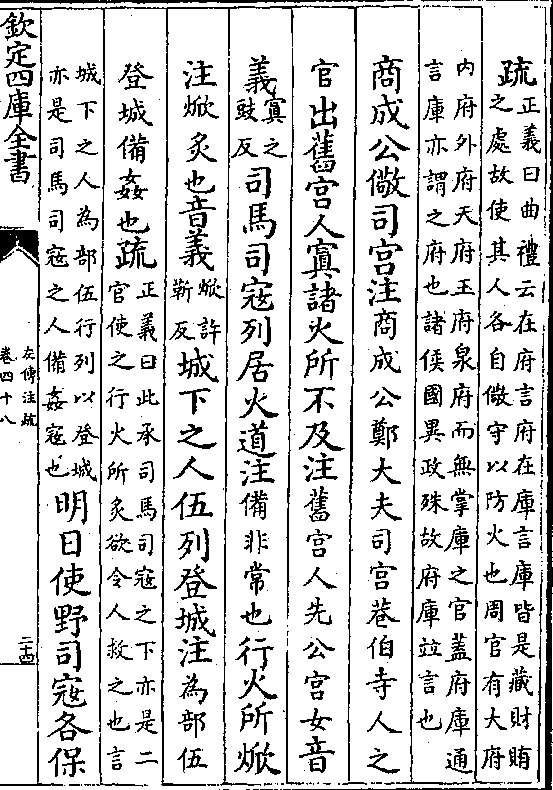 疏正義曰曲禮云在府言府在庫言庫皆是藏財賄
之處故使其人各自儆守以防火也周官有大府
内府外府天府玉府泉府而無掌庫之官蓋府庫通
言庫亦謂之府也諸侯國異政殊故府庫竝言也
商成公儆司宫注商成公鄭大夫司宫巷伯寺人之
官出舊宫人寘諸火所不及注舊宫人先公宫女音
義寘之豉反司馬司寇列居火道注備非常也行火所焮
注焮炙也音義焮許靳反城下之人伍列登城注為部伍
登城備姦也疏正義曰此承司馬司寇之下亦是二
官使之行火所炙欲令人救之也言
城下之人為部伍行列以登城
亦是司馬司寇之人備姦寇也明日使野司寇各保
欽定四庫全書
左傳注疏
卷四十八
二十四